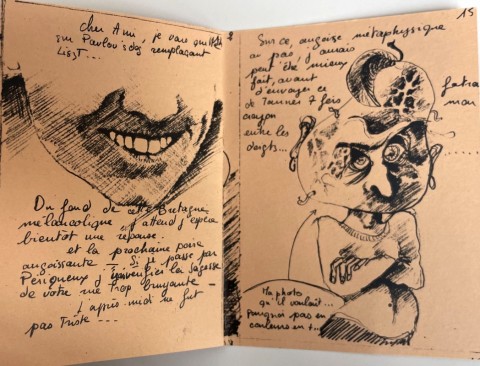 cher Ami, je vous quitte
sur Pavlov's dog remplaçant
Liszt...
Du fond de cette Bretagne
mélancolique, j'attend j'espère
bientôt une réponse.
et la prochaine poire
angoissante... Si je passe par
Périgueux j' la sagesse
de votre rue trop bruyante -
L'après-midi ne fut
pas Triste...
15
Sur ce, angoisse métaphysique
au pas, j'aurais
peut être mieux
fait, avant
d'envoyer ce
de Tourner 7 fois
crayon
entre les
doigts...
Ma photo
qu'il voulait...
Pourquoi pas en
couleurs en +...